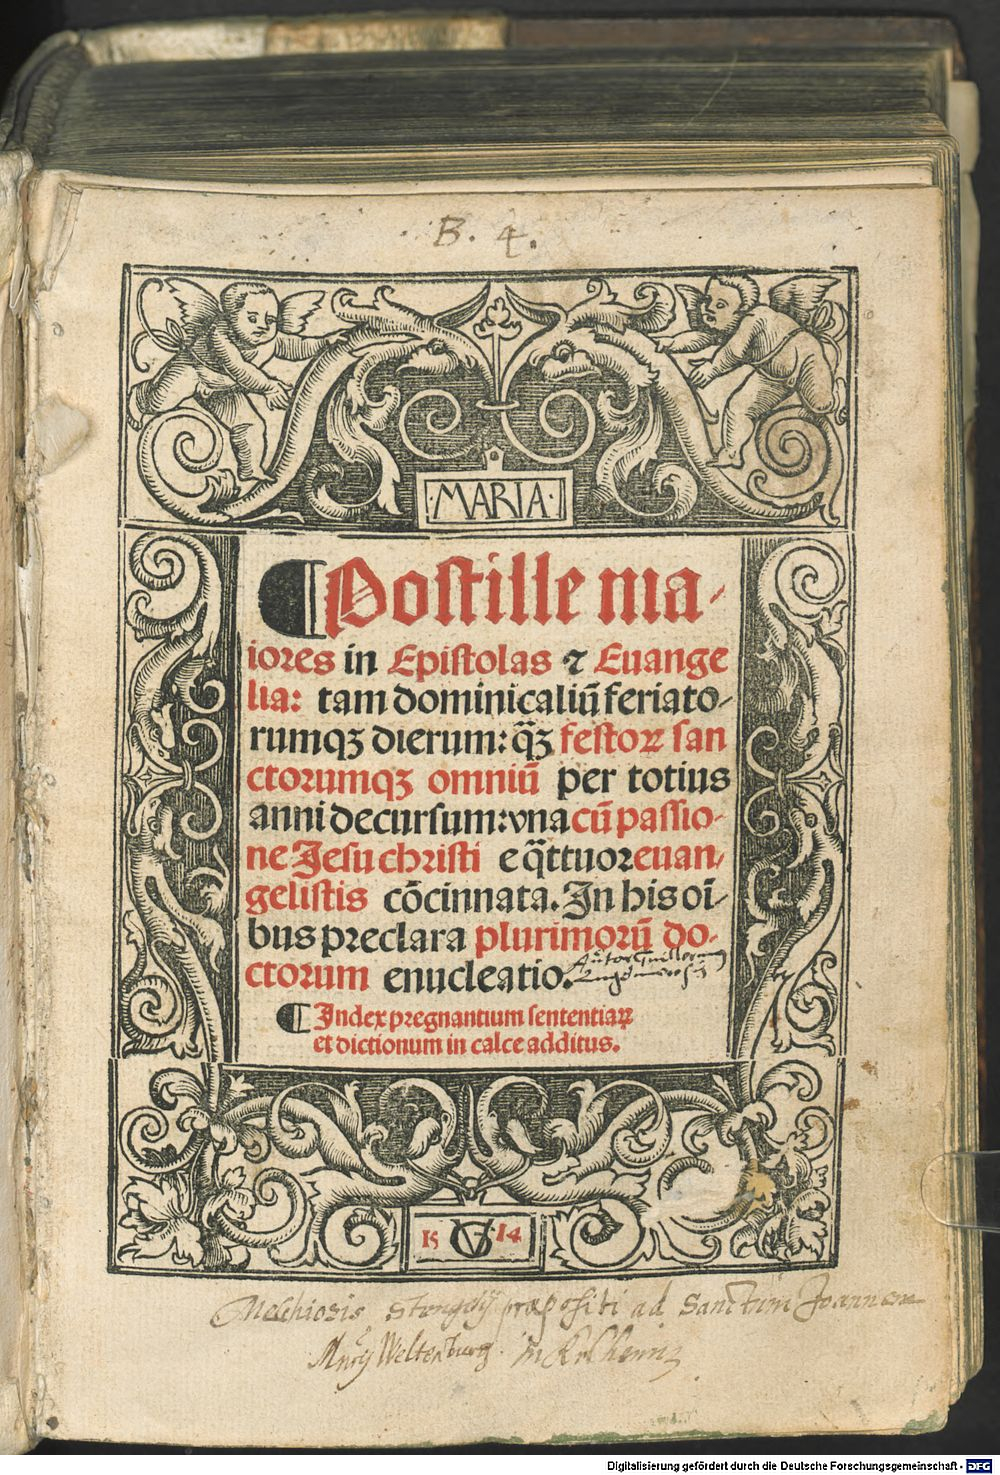 B. 4.
·MARIA·
¶ Postille ma⸗
iores in Epistolas ⁊ Euange
lia: tam dominicaliū feriato⸗
rumqꝫ dierum: q̄ꝫ festoꝝ san
ctorumqꝫ omniū per totius
anni decursum: vna cū passio⸗
ne Jesu christi e q̄ttuor euan⸗
gelistis cōcinnata. In his oī⸗
bus preclara plurimorū do⸗
ctorum enucleatio.
Autor Guillermus
¶ Index pregnantium sententiaꝝ
et dictionum in calce additus.
15 VG 14
Melchioris præpositi ad Sanctum Joannem
Weltenburg in
Digitalisierung gefördert durch die Deutsche Forschungsgemeinschaft - DFG